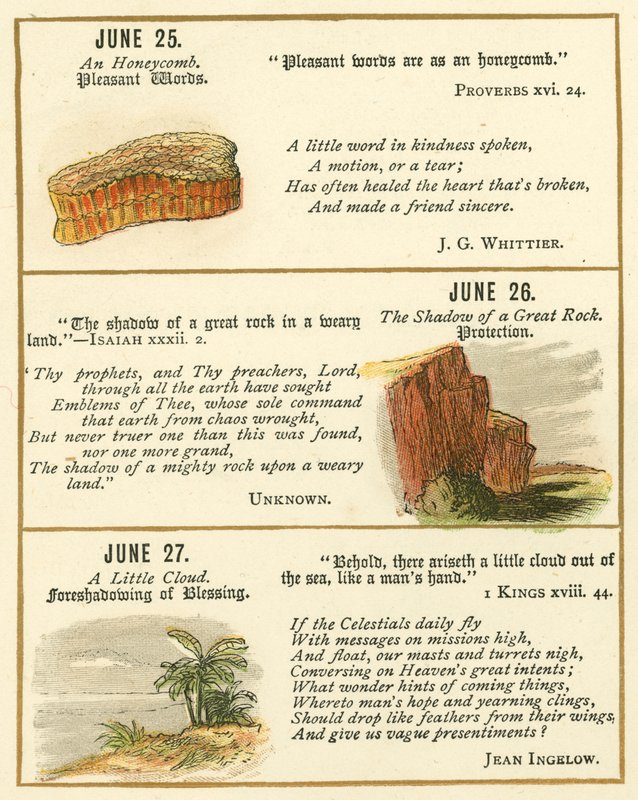 JUNE 25.
An Honeycomb.
Pleasant Words.
“Pleasant words are as an honeycomb.”
PROVERBS xvi. 24.
A little word in kindness spoken,
A motion, or a tear;
Has often healed the heart that's broken,
And made a friend sincere.
J. G. WHITTIER.
JUNE 26.
The Shadow of a Great Rock.
Protection.
“The shadow of a great rock in a weary
land.”—ISAIAH xxxii. 2.
‘Thy prophets, and Thy preachers, Lord,
through all the earth have sought
Emblems of Thee, whose sole command
that earth from chaos wrought,
But never truer one than this was found,
nor one more grand,
The shadow of a mighty rock upon a weary
land.”
UNKNOWN.
JUNE 27.
A Little Cloud.
Foreshadowing of Blessing.
“Behold, there ariseth a little cloud out of
the sea, like a man's hand.”
1 KINGS xviii. 44.
If the Celestials daily fly
With messages on missions high,
And float, our masts and turrets nigh,
Conversing on Heaven's great intents;
What wonder hints of coming things,
Whereto man's hope and yearning clings,
Should drop like feathers from their wings,
And give us vague presentiments?
JEAN INGELOW.